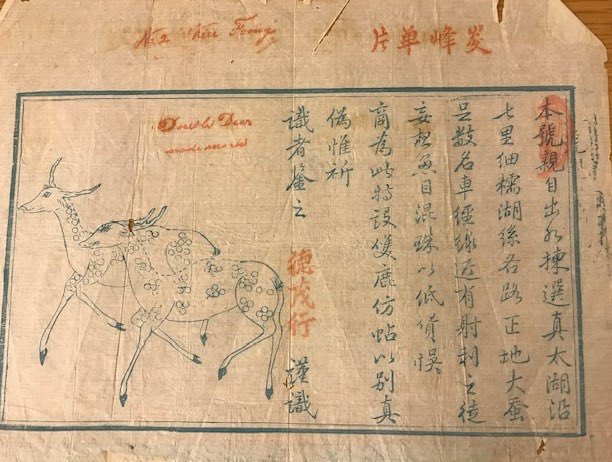 No 2 Kiu Foong
峰单片
Double Deer
trade mark
本號親自出外揀選真太湖沿
七里细糯湖絲各路正地大蚕
足数名車經線近有射利之徒
妄想魚目混珠以低貨悮
商為此特設雙鹿仿帖以别真
偽惟祈
識者鑒之
德茂行 謹識